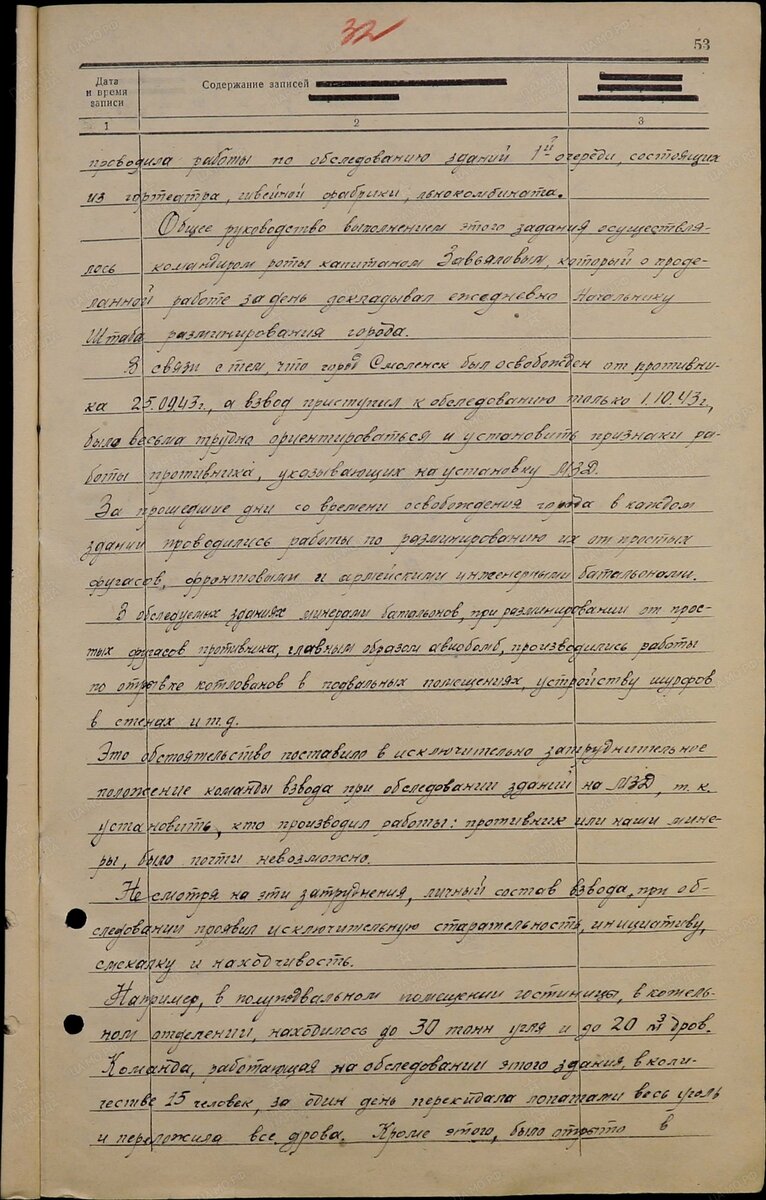 32
53
Дата
и время
записи
Содержание записей
1
2
3
проводила работы по обследованию зданий 1й очереди, состоящих
из гортеатра, швейной фабрики, льнокомбината.
Общее руководство выполнением этого задания осуществля-
лось командиром роты капитаном Завьяловым, который о проде-
ланной работе за день докладывал ежедневно Начальнику
Штаба разминирования города.
В связи с тем, что город Смоленск был освобожден от противни-
ка 25.0943г., а взвод приступил к обследованию только 1.10.43г.,
было весьма трудно ориентироваться и установить признаки ра-
боты противника, указывающих на установку МЗД.
За прошедшие дни со времени освобождения города в каждом
здании проводились работы по разминированию их от простых
фугасов, фронтовыми и армейскими инженерными батальонами.
В обследуемых зданиях минерами батальонов, при разминировании от прос-
тых фугасов противника, главным образом авиобомб, производились работы
по отрывке котлованов в подвальных помещениях, устройству шурфов
в стенах и т.д.
Это обстоятельство поставило в исключительно затруднительное
положение команды взвода при обследовании зданий на МЗД, т.к.
установить, кто производил работы: противник или наши мине-
ры, было почти невозможно.
Не смотря на эти затруднения, личный состав взвода, при об-
следовании проявил исключительную старательность, инициативу,
смекалку и находчивость.
Например, в полуподвальном помещении гостиницы, в котель-
ном отделении, находилось до 30 тонн угля и до 20 м3 дров.
Команда, работающая на обследовании этого здания, в коли-
честве 15 человек, за один день перекидала лопатами весь уголь
и переложила все дрова. Кроме этого, было отрыто в